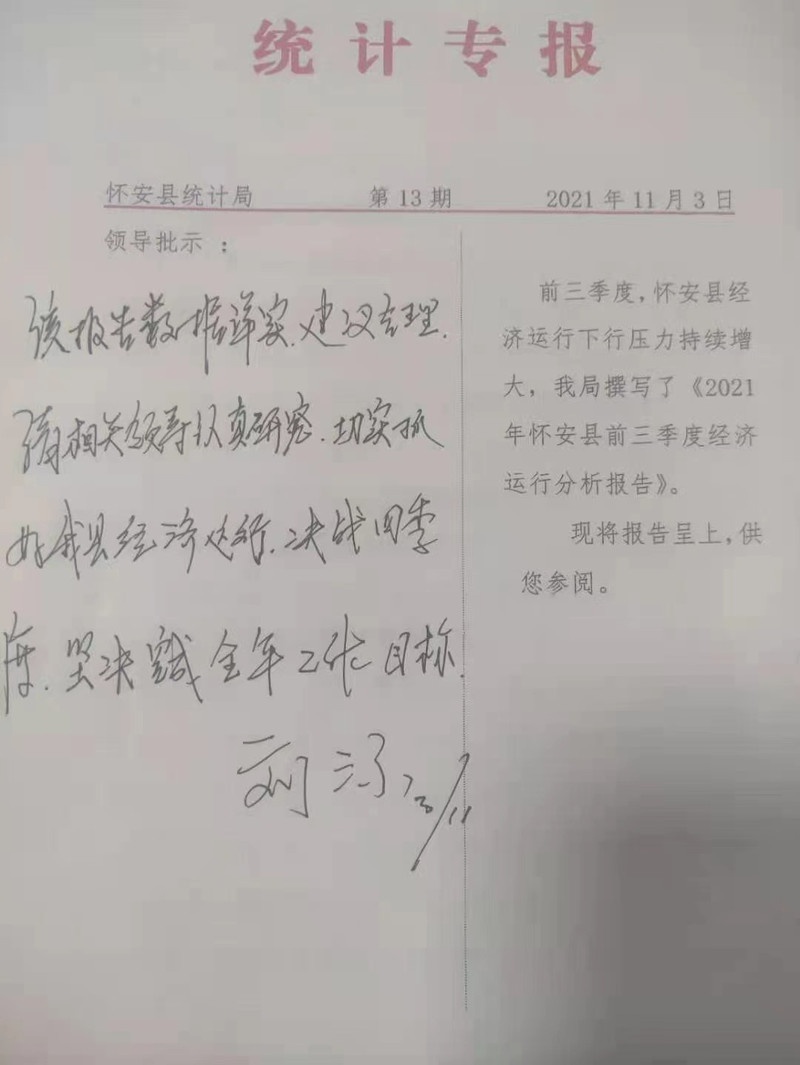 统计专报
怀安县统计局 第13期 2021年11月3日
领导批示：
该报告数据详实、建议合理.
请相关领导认真研究、切实抓
好我县经济运行、决战四季
度、坚决完成全年工作目标.
刘
3/11
前三季度，怀安县经
济运行下行压力持续增
大，我局撰写了《2021
年怀安县前三季度经济
运行分析报告》。
现将报告呈上，供
您参阅。